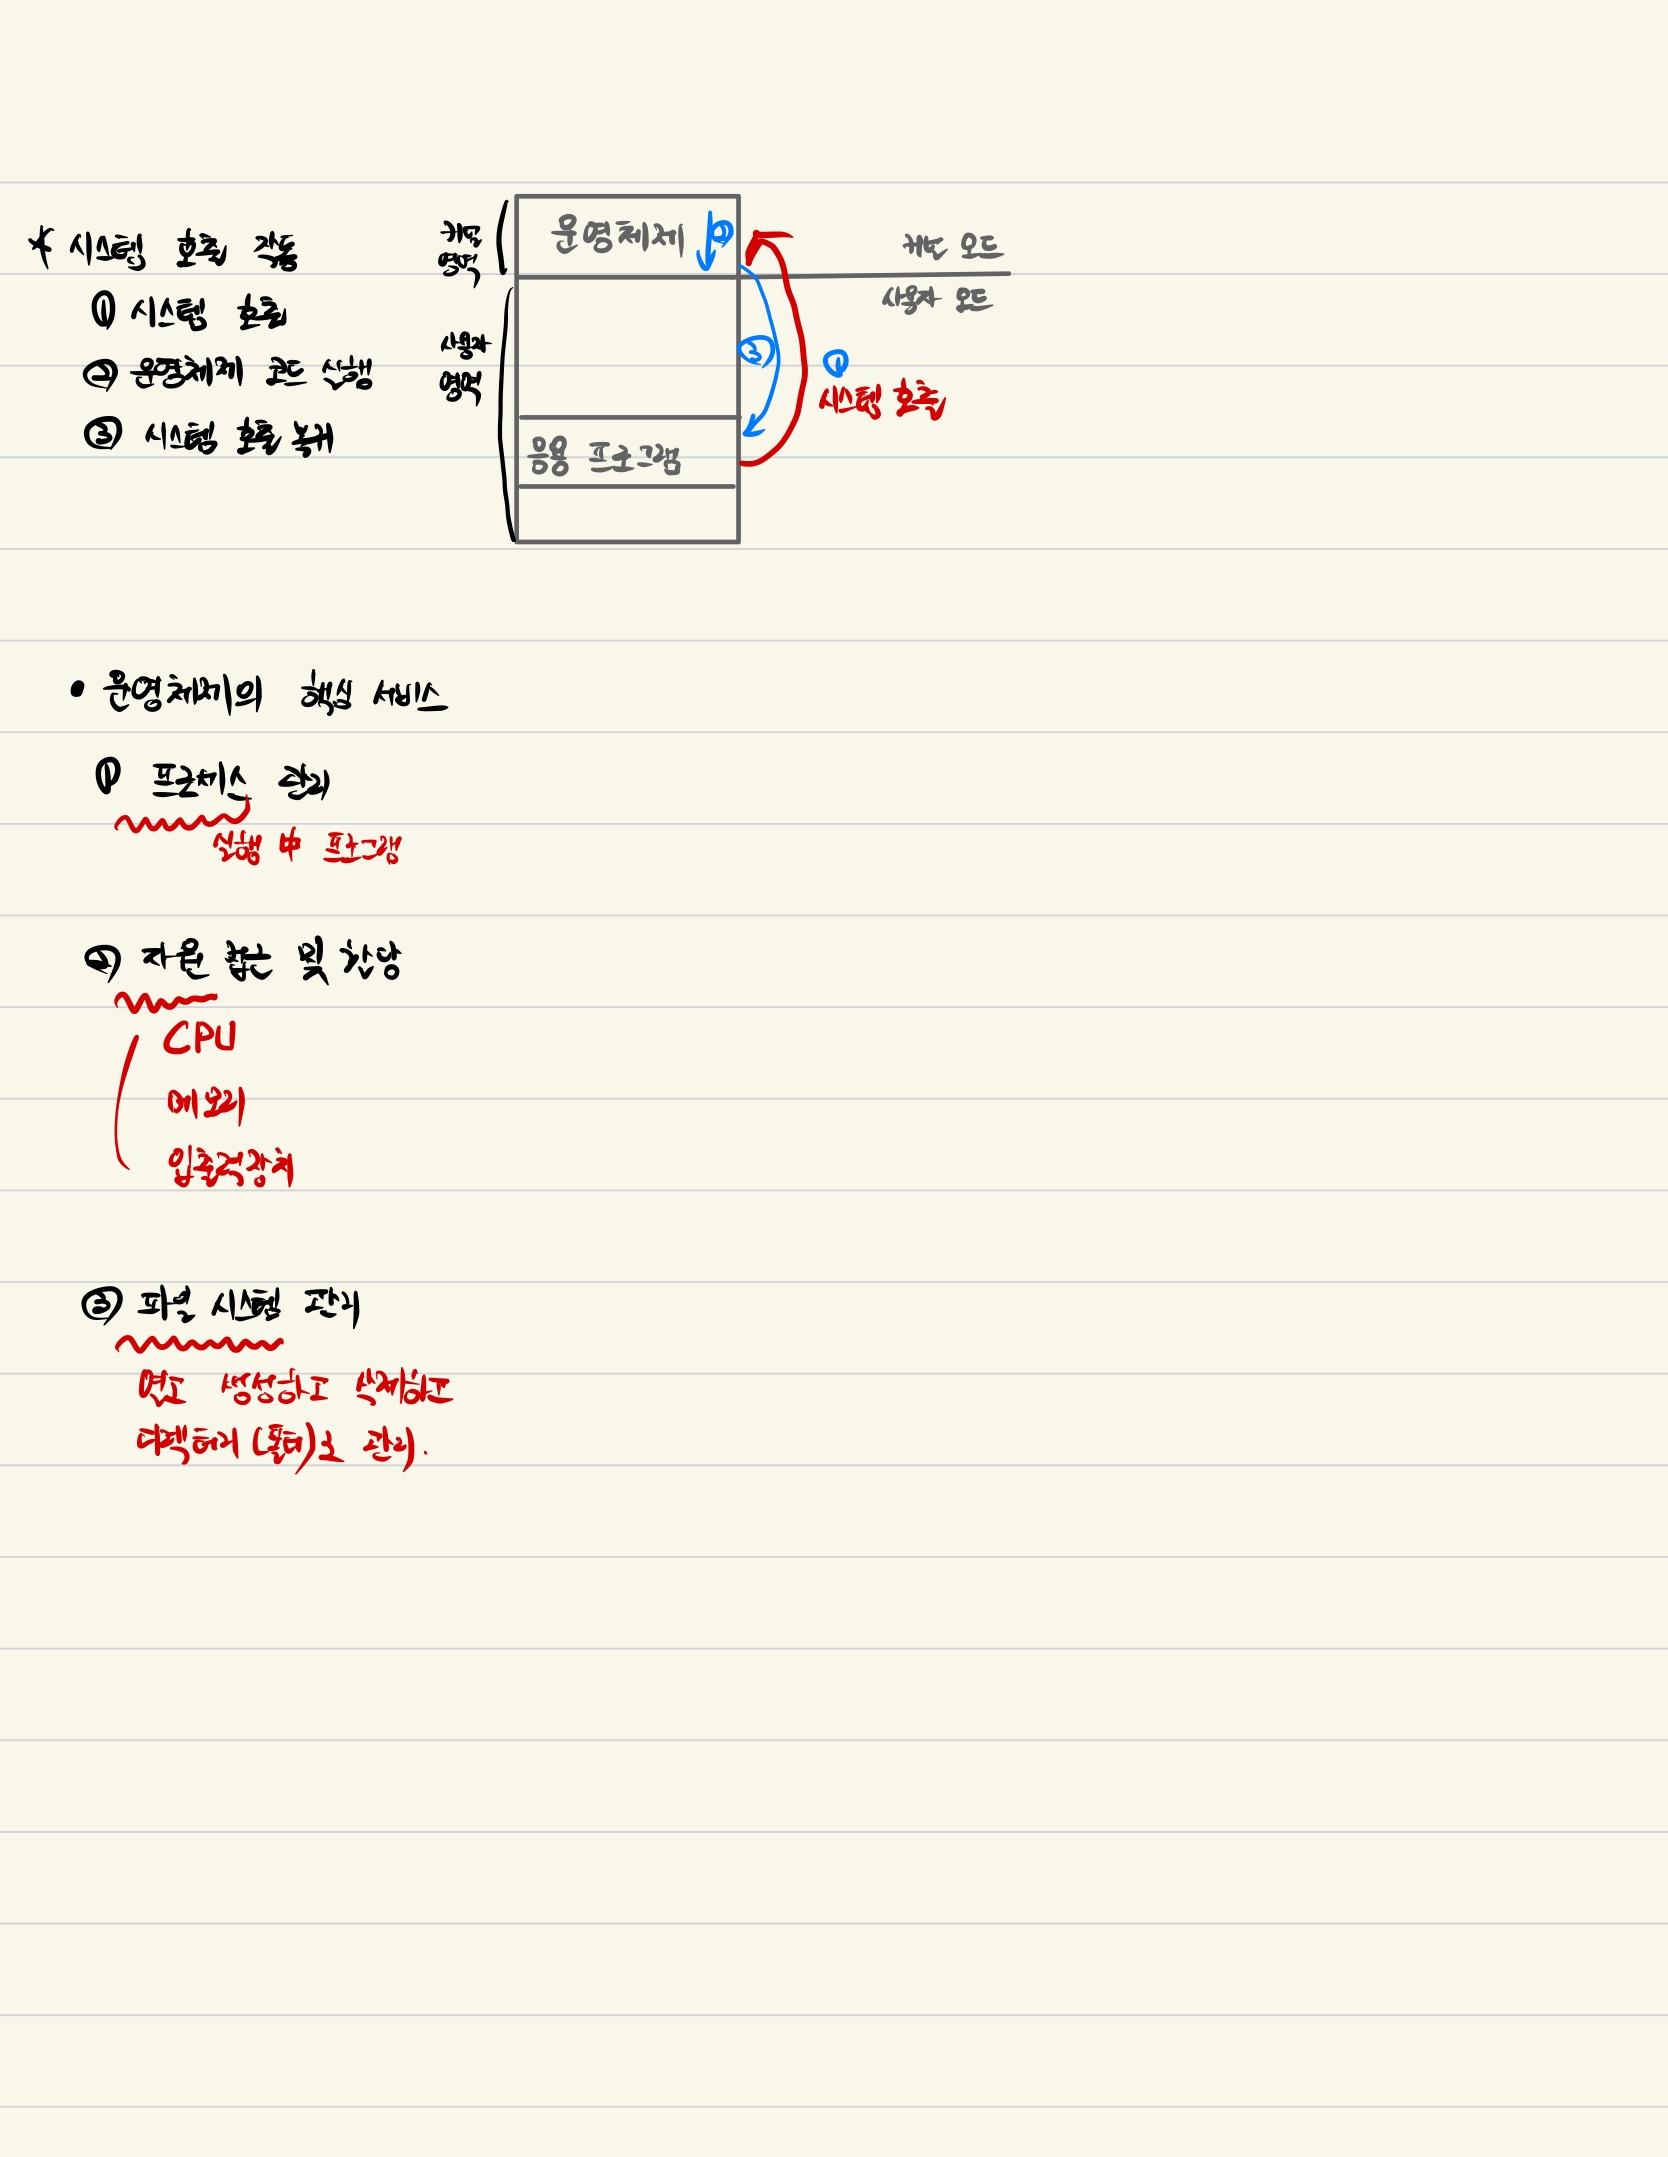 * 시스템 호출 작동
① 시스템 호출
② 운영체제 코드 실행
③ 시스템 호출 복귀
커널
영역
사용자
영역
운영체제 ②
응용 프로그램
커널 모드
사용자 모드
③
①
시스템 호출
• 운영체제의 핵심 서비스
① 프로세스 관리
실행 中 프로그램
② 자원 접근 및 할당
CPU
메모리
입출력장치
③ 파일 시스템 관리
열고 생성하고 삭제하고
디렉터리 (폴더)로 관리.